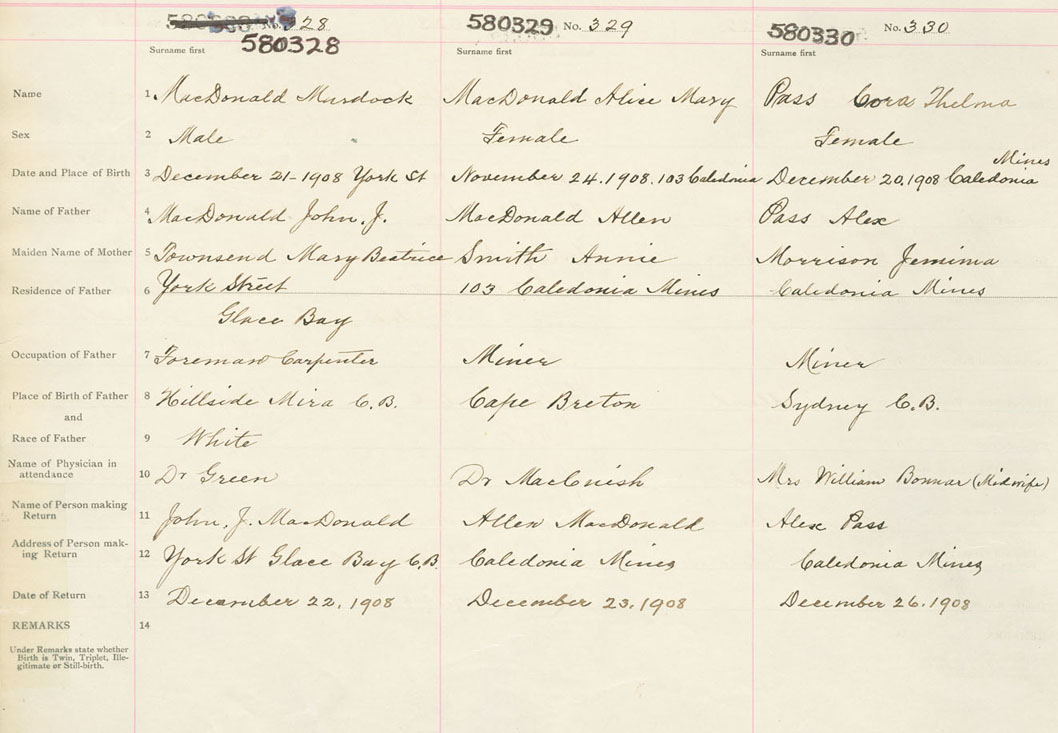 580328 No. 328 580329 No. 329 580330 No. 330
580328
Surname first Surname first Surname first
Name 1 MacDonald Murdock MacDonald Alice Mary Pass Cora Thelma
Sex 2 Male Female Female
Mines
Date and Place of Birth 3 December 21-1908 York St November 24.1908.103 Caledonia December 20,1908 Caledonia
Name of Father 4 MacDonald John, J. MacDonald Allen Pass Alex
Maiden Name of Mother 5 Townsend Mary Beatrice Smith Annie Morrison Jemima
Residence of Father 6 York Street 103 Caledonia Mines Caledonia Mines
Glace Bay
Occupation of Father 7 Foreman Carpenter Miner Miner
Place of Birth of Father 8 Hillside Mira C.B. Cape Breton Sydney C.B.
and
Race of Father 9 White
Name of Physician in
attendance 10 Dr Green Dr MacCuish Mrs William Bonnar (Midwife)
Name of Person making
Return 11 John, J. MacDonald Allen MacDonald Alex Pass
Address of Person mak-
ing Return 12 York St Glace Bay C.B. Caledonia Mines Caledonia Mines
Date of Return 13 December 22, 1908 December 23.1908 December 26.1908
REMARKS 14
Under Remarks state whether
Birth is Twin, Triplet, Ille-
gitimate or Still-birth.